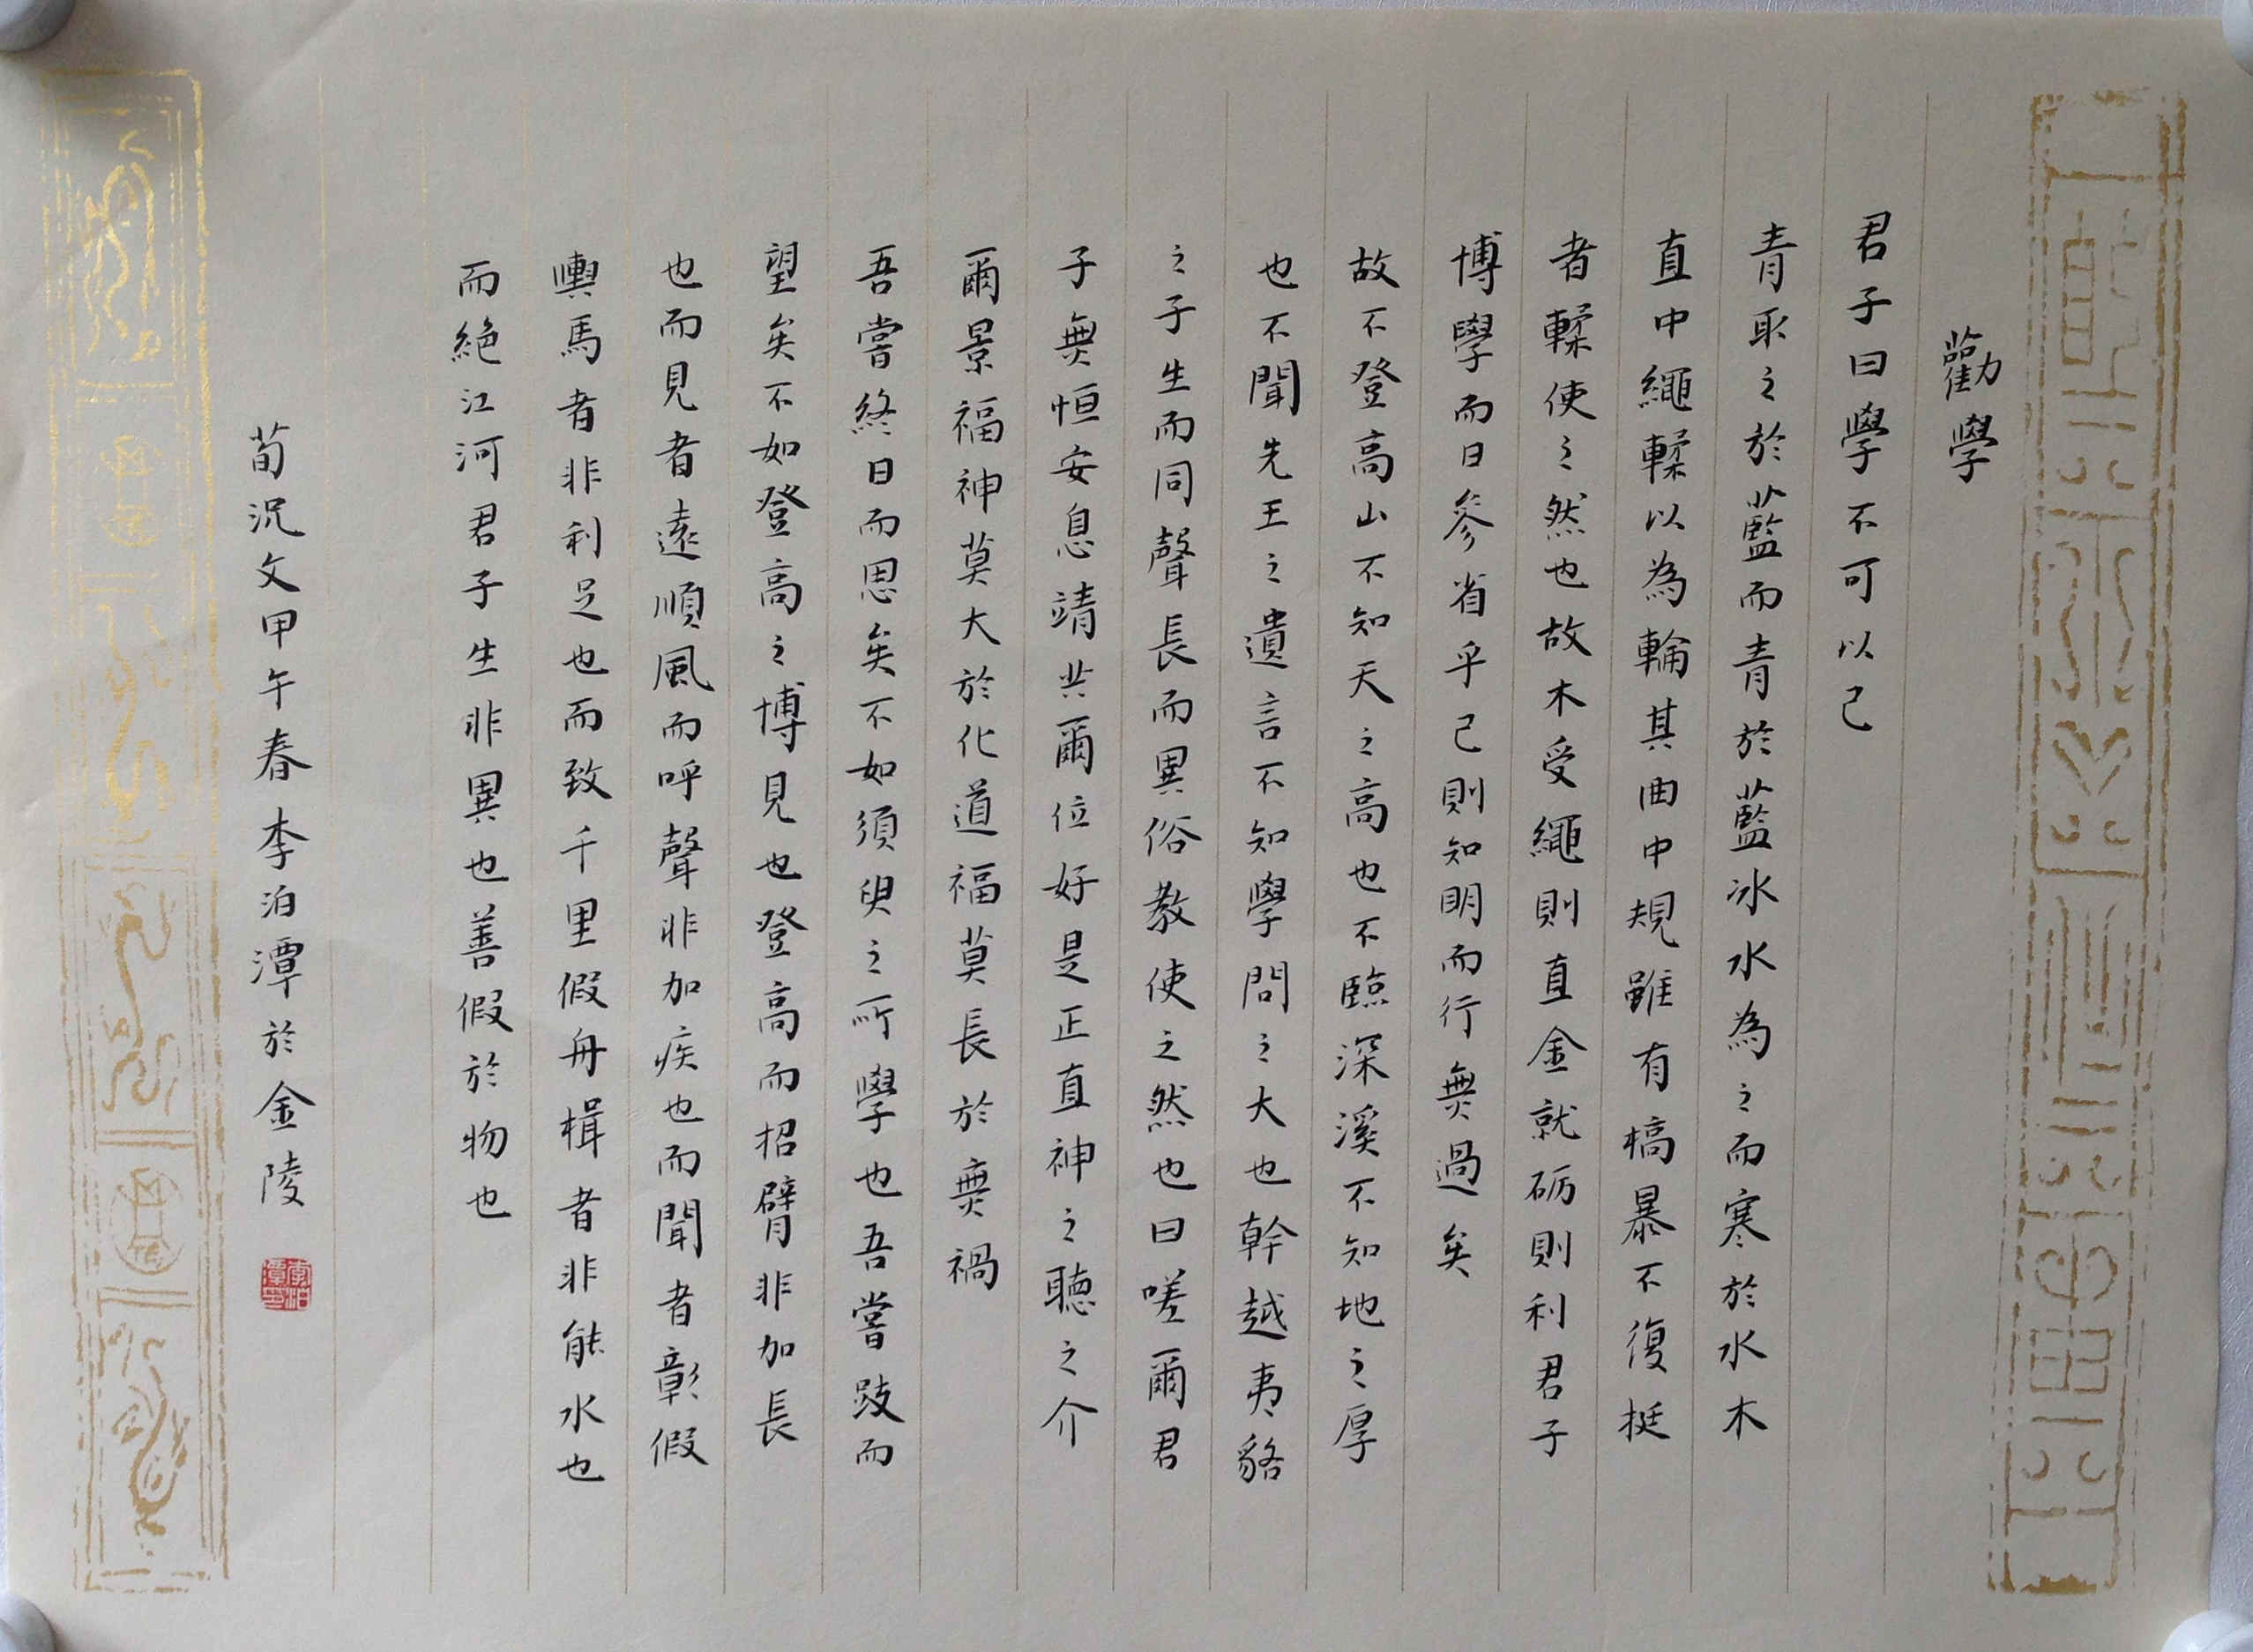 勸學
君子曰學不可以己
青取之於藍而青於藍冰水為之而寒於水木
直中繩輮以為輪其曲中規雖有槁暴不復挺
者輮使之然也故木受繩則直金就砺則利君子
博學而日參省乎己則知明而行無過矣
故不登高山不知天之高也不臨深溪不知地之厚
也不聞先王之遺言不知學問之大也幹越夷貉
之子生而同聲長而異俗教使之然也曰嗟爾君
子無恒安息靖共爾位好是正直神之聽之介
爾景福神莫大於化道福莫長於無禍
吾嘗終日而思矣不如須臾之所學也吾嘗跂而
望矣不如登高之博見也登高而招臂非加長
也而見者遠順風而呼聲非加疾也而聞者彰假
輿馬者非利足也而致千里假舟楫者非能水也
而絕江河君子生非異也善假於物也
荀況文甲午春李泊潭於金陵
李泊潭印